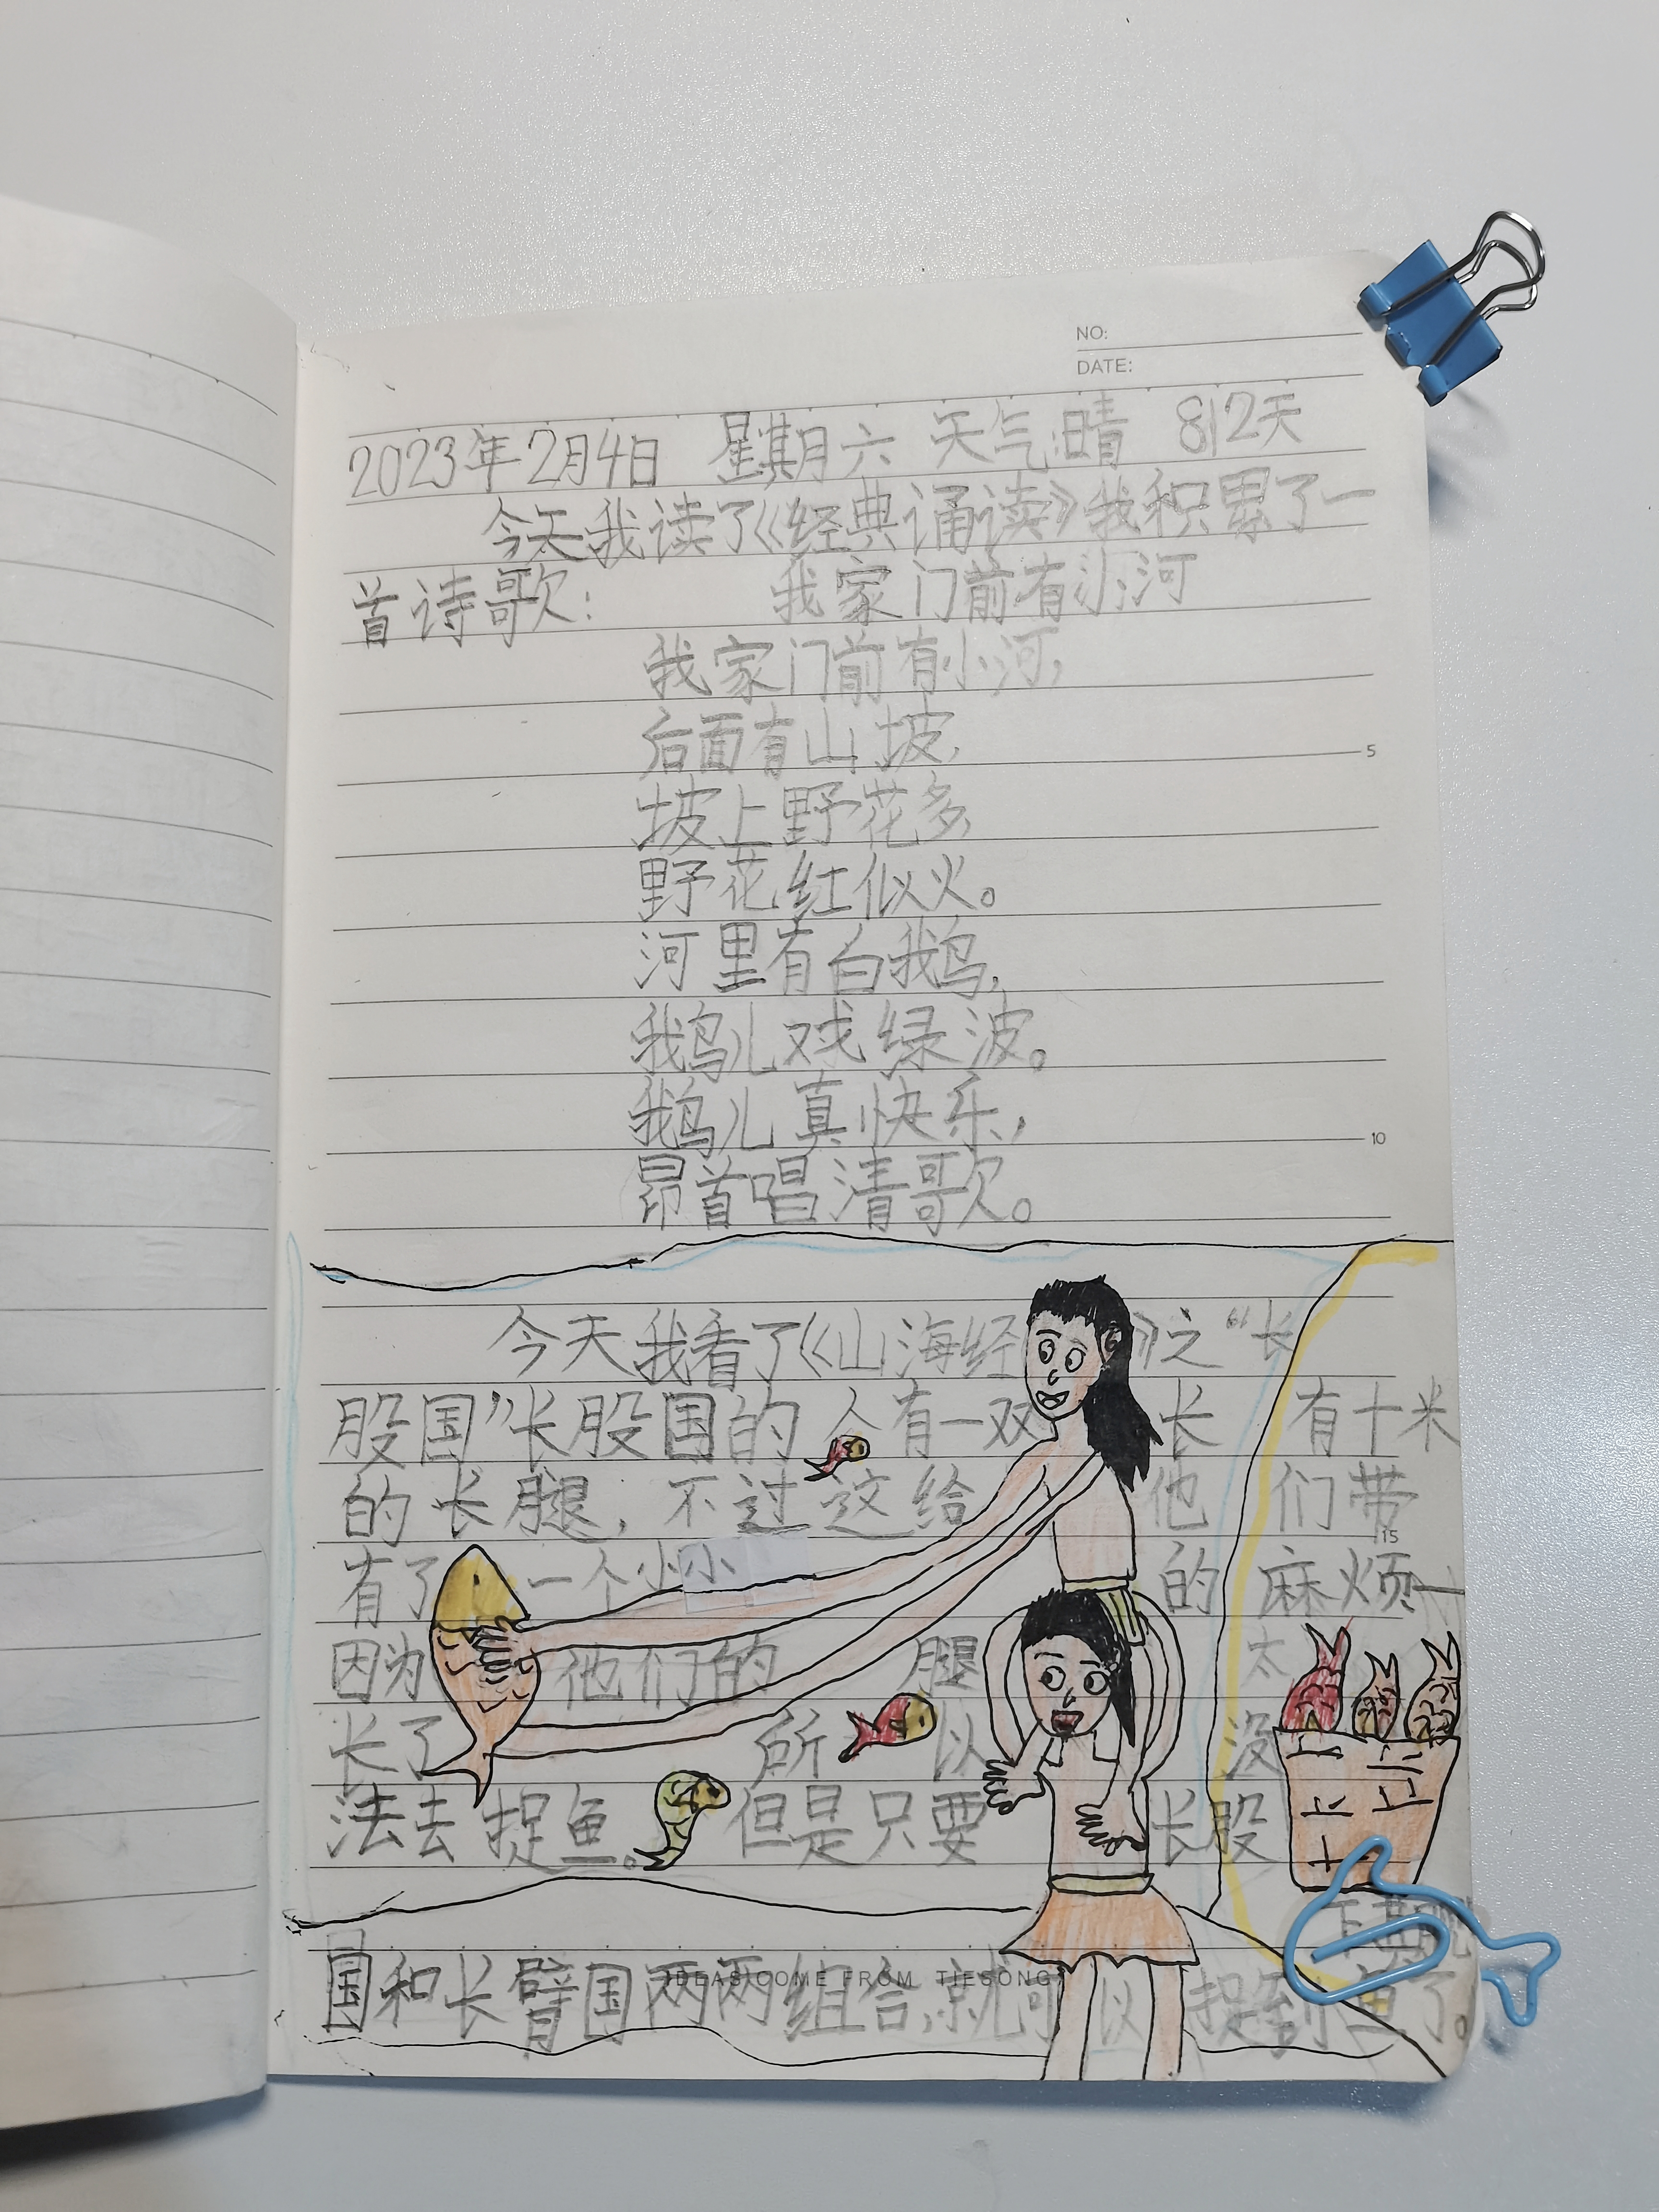 NO:
DATE:
2023年2月4日 星期六 天气:晴 812天
今天我读了《经典诵读》我积累了一
首诗歌: 我家门前有小河
我家门前有小河,
后面有山坡,
5
坡上野花多
野花红似火。
河里有白鹅,
鹅儿戏绿波。
鹅儿真快乐,
10
昂首唱清歌。
今天我看了《山海经》之“长
股国”长股国的人有一双长 有十米
的长腿,不过这给他们带
15
有了一个小小的麻烦一
因为他们的腿太
长了所以没
法去捉鱼。但是只要长股
国和长臂国两两组合,就可以捉到鱼了。
IDEAS COME FROM TIESONG